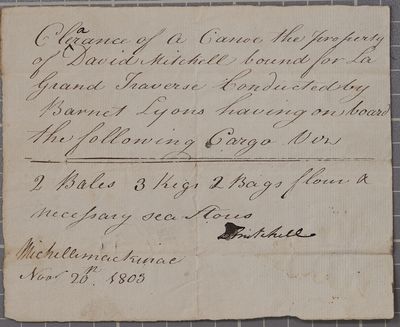 Clearance of a Canoe the property
of David Mitchell bound for La
Grand Traverse Conducted by
Barnet Lyons having on board
the following Cargo Viz
2 Bales 3 Kegs 2 Bags flour &
necessary sea Stores
DMitchell
Michilimackinac
Novr 20th 1803